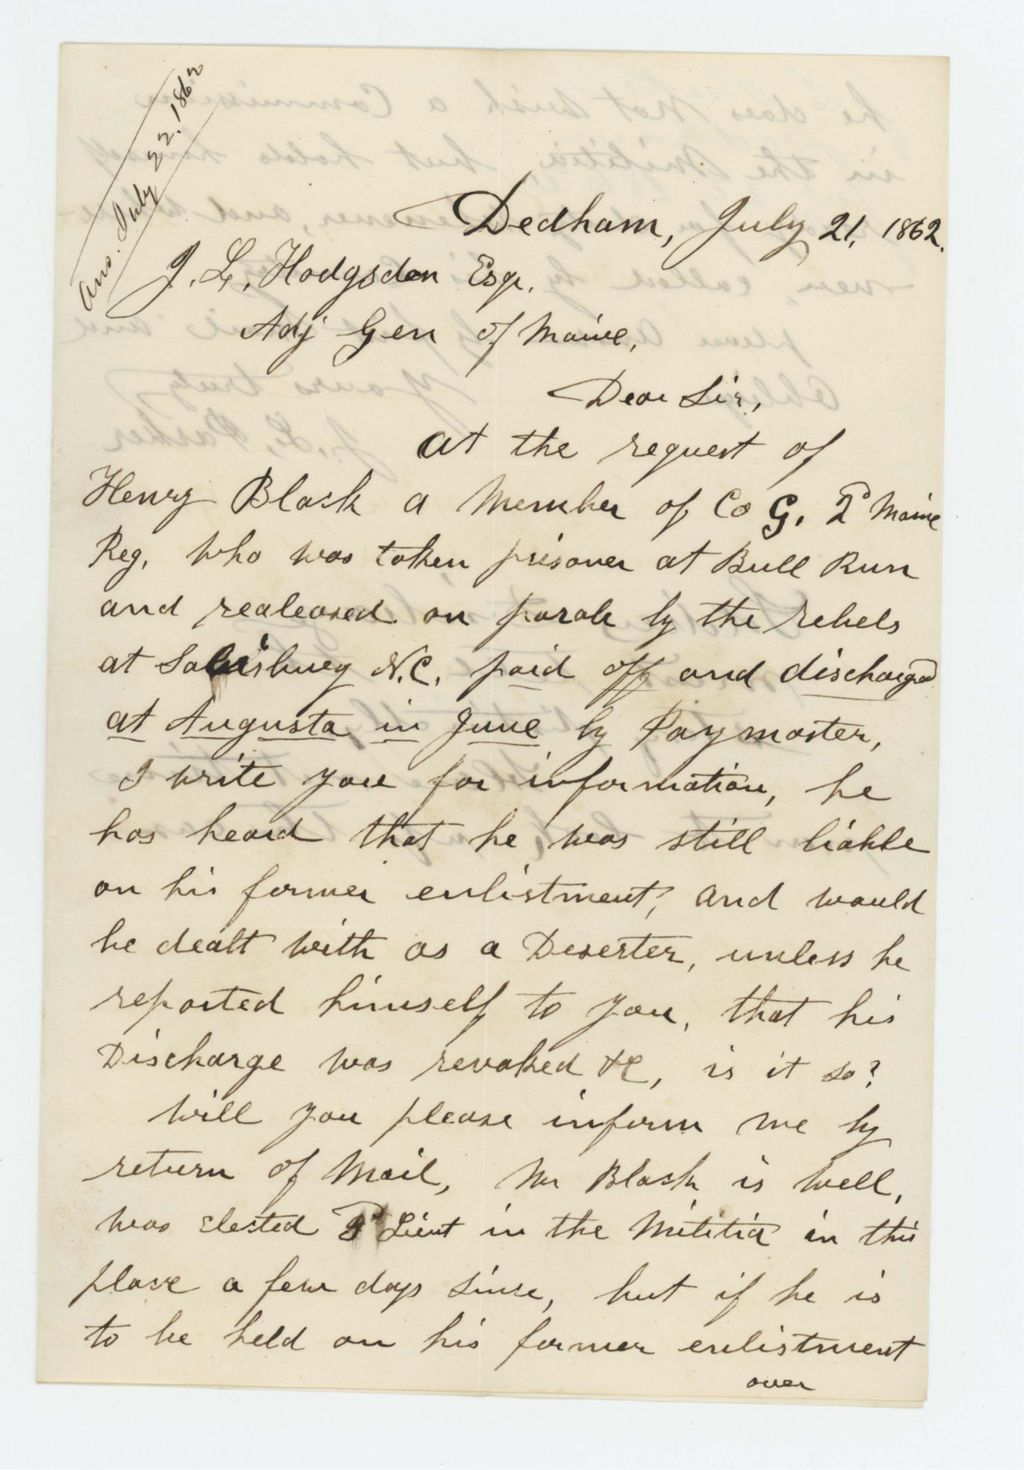 Ans. July 22. 1862
Dedham, July 21, 1862.
J. L. Hodgsden Esqr.
Adj Gen of Maine,
Dear Sir,
At the request of
Henry Black a Member of Co G. 2d Maine
Reg, who was taken prisoner at Bull Run
and realeased on parole by the rebels
at Salisbury N.C. paid off and discharged
at Augusta in June by Paymaster,
I write you for information, he
has heard that he was still liable
on his former enlistment, and would
be dealt with as a Deserter, unless he
reported himself to you, that his
Discharge was revoked &c, is it so?
Will you please inform me by
return of Mail, Mr Black is well,
was elected Lieut in the Militia in this
place a few days since, but if he is
to be held on his former enlistment
over